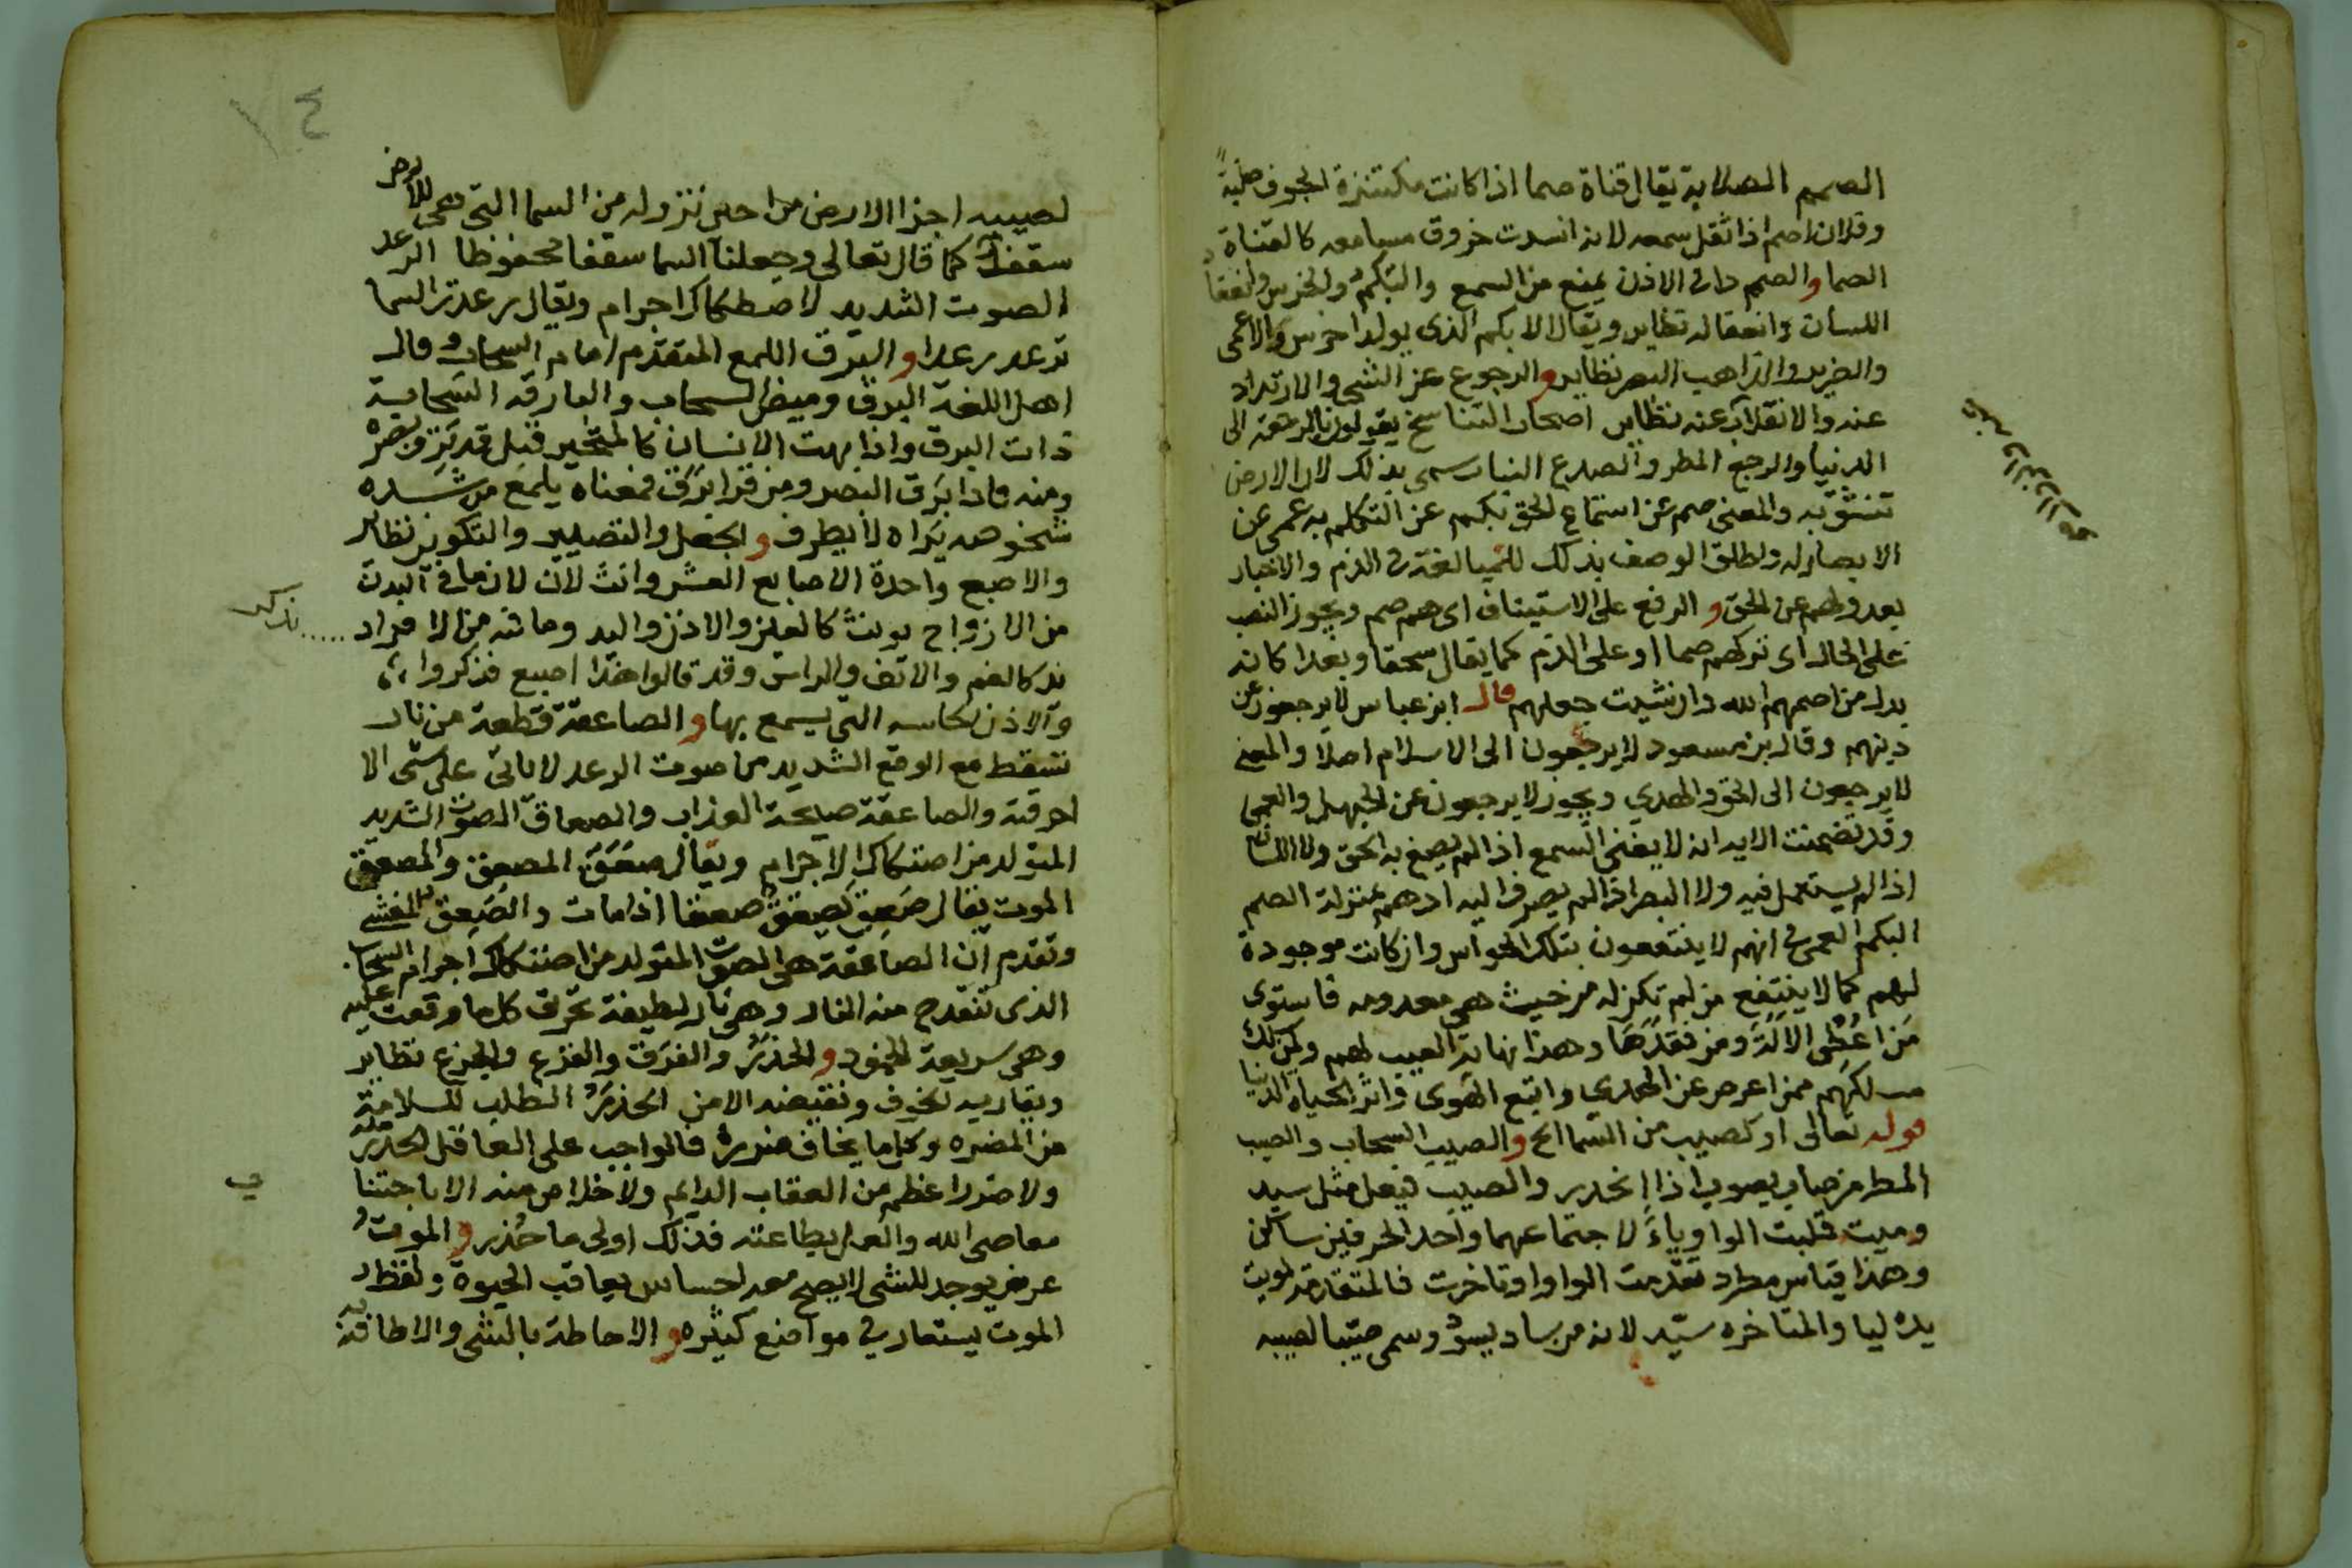 الصمم الصلابة يقال قناة صما اذا كانت مكتنزة الجوف صلبة
وفلان اصم اذا ثقل سمعه لانه انسدت خروق مسامعه كالقناة
الصما والصمم دا فى الاذن يمنع من السمع والتبكم والخرس
اللسان واعتقاله نظاير ويقال الابكم الذى يولد اخرس والاعمى
والضرير والذاهب البصر نظاير والرجوع عن الشى والارتداد
عنه والانقلاب عنه نظاير اصحاب التناسخ يقولون بالرجعة الى
الدنيا والرجع المطر والصدع النبات سمى بذلك لان الارض
تنشق به والمعنى صم عن استماع الحق بكم عن التكلم به عمى عن
الابصار له واطلق الوصف بذلك للمبالغة فى الذم والاخبار
بعدولهم عن الحق والرفع على الاستيناف اى هم صم ويجوز النصب
على الحال اى تركهم صما او على الذم كما يقال سحقا وبعدا كانه
بدل من اصمهم الله وان شيت جعلهم قال ابن عباس لا يرجعون عن
دينهم وقال بن مسعود لا يرجعون الى الاسلام اصلا والمعنى
لا يرجعون الى الحق والهدي ويجوز لا يرجعون عن الجهل والعمى
وقد تضمنت الاية انه لا يغنى السمع اذا لم يصغ به الحق ولا اللسان
اذا لم يستعمل فيه ولا البصر اذا لم يصرف اليه اذ هم بمنزلة الصم
البكم العمى فى انهم لا ينتفعون بتلك الحواس وان كانت موجودة
لهم كما لا ينتفع من لم تكن له من حيث هى معدومه فاستوى
من اعطى الالة ومن فقدها وهذا نهاية العيب لهم ولمن سلك
مسلكهم ممن اعرض عن الهدي واتبع الهوى واثر الحياة الدنيا
قوله تعالى او كصيب من السما الخ والصيب السحاب والصيب
المطر من صاب يصوب اذا انحدر والصيب فيعل مثل سيد
وميت قلبت الواو ياء لاجتماعهما واحد الحرفين ساكن
وهذا قياس مطرد تقدمت الواو او تاخرت فالمتقدمة لويت
يده ليا والمتاخره سيد لانه من ساد يسود وسمى صيبا لصيبه
١٤
لصيبه اجزا الارض من حين نزوله من السما التى هى للارض
سقفا كما قال تعالى وجعلنا السما سقفا محفوظا الرعد
الصوت الشديد لاصطكاك اجرام ويقال رعدت السما
ترعد رعدا والبرق اللمع المتقدم امام السحاب وقال
اهل اللغة البرق وميض السحاب والبارقه السحابة
ذات البرق واذا بهت الانسان كالمتحير قيل قد برق بصره
ومنه فاذا برق البصر ومن قرا برق فمعناه يلمع من شده
شخوصه تراه لا يطرف والجعل والتصيير والتكوين نظاير
والاصبع واحدة الاصابع العشر وانث لان لان ما فى البدن
من الازواج يونث كالعين والاذن واليد وما فيه من الافراد
يذكر
يذ كالفم والانف والراس وقد قالوا هذا اصبع فذكروا
والاذن الحاسه التى يسمع بها والصاعقة قطعة من نار
تسقط مع الوقع الشديد من صوت الرعد لا تاتى على شى الا
احرقته والصاعقة صيحة العذاب والصعاق الصوت الشديد
المتولد من اصتكاك الاجرام ويقال صعق المصعق والمصعق
الموت يقال صعق يصعق صعقا اذا مات والصعق المغشى
وتقدم ان الصاعقة هى الصوت المتولد من اصتكاك اجرام السحاب
الذى تنقدح منه النار وهى نار لطيفة تحرق كل ما وقعت عليه
وهى سريعة الخمود والحذر والفرق والفزع والجزع نظاير
ويقاربه الخوف ونقيضه الامن الحذر الطلب للسلامة
من المضره وكل ما يخاف ضرره فالواجب على العاقل الحذر منه
ولا ضرر اعظم من العقاب الدايم ولا خلاص منه الا باجتنا
ب
معاصى الله والعمل بطاعته فذلك اولى ما حذر والموت
عرض يوجد للشى لا يصح معه احساس يعاقب الحيوة ولفظ
الموت يستعار فى مواضع كثيره والاحاطة بالشى والاطاقة به